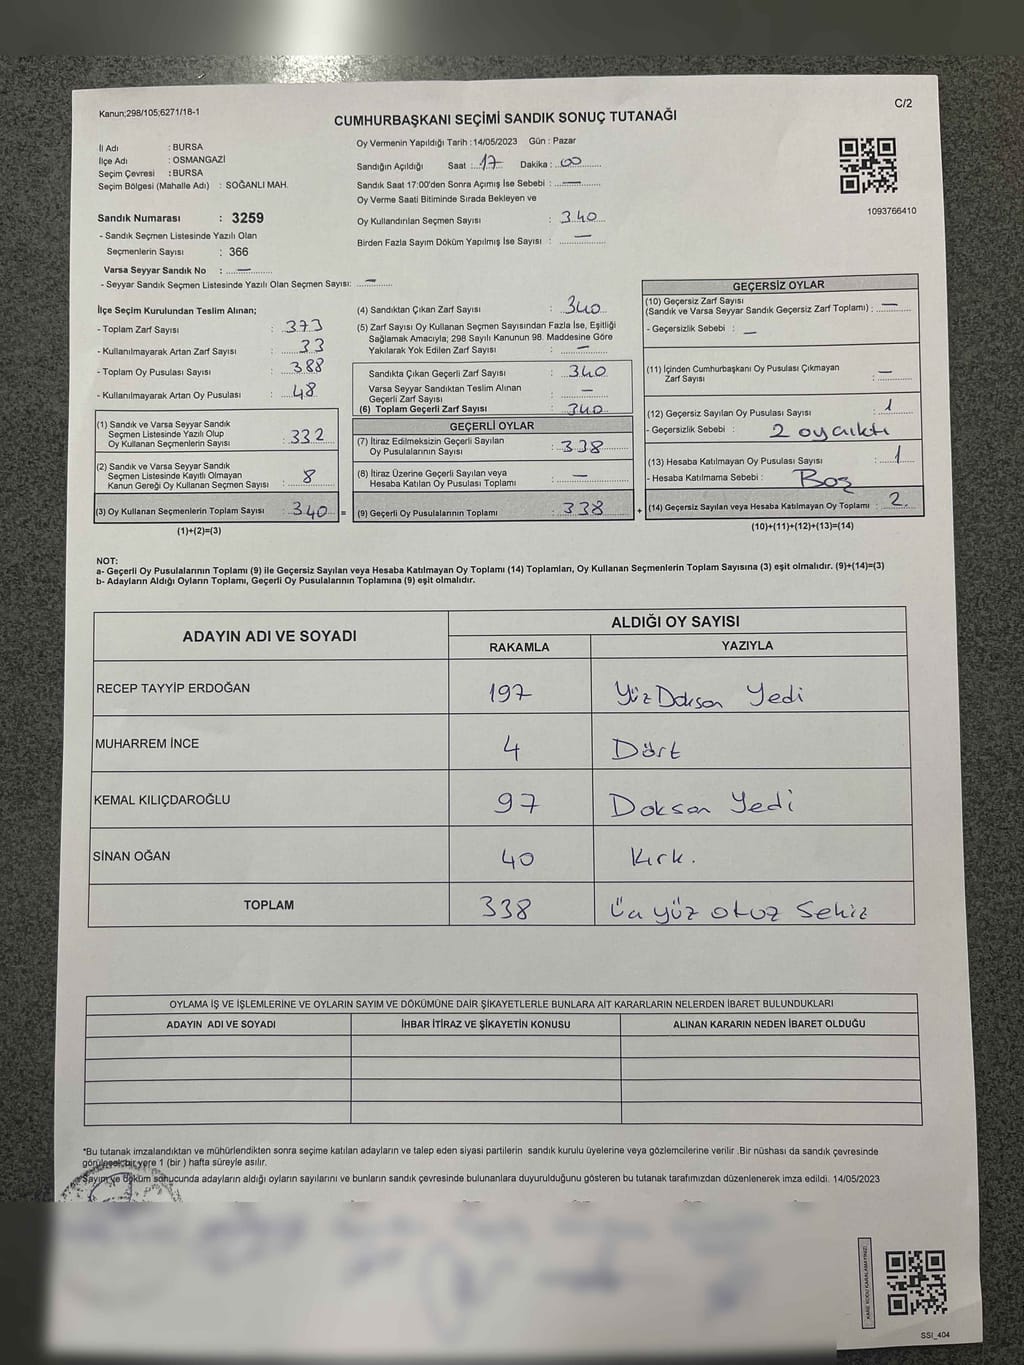 Kanun;298/105;6271/18-1
C/2
CUMHURBAŞKANI SEÇİMİ SANDIK SONUÇ TUTANAĞI
İl Adı : BURSA
İlçe Adı : OSMANGAZİ
Seçim Çevresi : BURSA
Seçim Bölgesi (Mahalle Adı) : SOĞANLI MAH.
Sandık Numarası : 3259
- Sandık Seçmen Listesinde Yazılı Olan
Seçmenlerin Sayısı : 366
Varsa Seyyar Sandık No : —
- Seyyar Sandık Seçmen Listesinde Yazılı Olan Seçmen Sayısı: —
Oy Vermenin Yapıldığı Tarih :14/05/2023 Gün : Pazar
Sandığın Açıldığı Saat : 17 Dakika : 00
Sandık Saat 17:00'den Sonra Açımış İse Sebebi : —
Oy Verme Saati Bitiminde Sırada Bekleyen ve
Oy Kullandırılan Seçmen Sayısı : 340
Birden Fazla Sayım Döküm Yapılmış İse Sayısı : —
1093766410
İlçe Seçim Kurulundan Teslim Alınan;
- Toplam Zarf Sayısı : 373
- Kullanılmayarak Artan Zarf Sayısı : 33
- Toplam Oy Pusulası Sayısı : 388
- Kullanılmayarak Artan Oy Pusulası : 48
(1) Sandık ve Varsa Seyyar Sandık
Seçmen Listesinde Yazılı Olup
Oy Kullanan Seçmenlerin Sayısı : 332
(2) Sandık ve Varsa Seyyar Sandık
Seçmen Listesinde Kayıtlı Olmayan
Kanun Gereği Oy Kullanan Seçmen Sayısı : 8
(3) Oy Kullanan Seçmenlerin Toplam Sayısı : 340 =
(1)+(2)=(3)
(4) Sandıktan Çıkan Zarf Sayısı : 340
(5) Zarf Sayısı Oy Kullanan Seçmen Sayısından Fazla İse, Eşitliği
Sağlamak Amacıyla; 298 Sayılı Kanunun 98. Maddesine Göre
Yakılarak Yok Edilen Zarf Sayısı : —
Sandıkta Çıkan Geçerli Zarf Sayısı : 340
Varsa Seyyar Sandıktan Teslim Alınan
Geçerli Zarf Sayısı : —
(6) Toplam Geçerli Zarf Sayısı : 340
GEÇERLİ OYLAR
(7) İtiraz Edilmeksizin Geçerli Sayılan
Oy Pusulalarının Sayısı : 338
(8) İtiraz Üzerine Geçerli Sayılan veya
Hesaba Katılan Oy Pusulası Toplamı : —
(9) Geçerli Oy Pusulalarının Toplamı : 338 +
GEÇERSİZ OYLAR
(10) Geçersiz Zarf Sayısı
(Sandık ve Varsa Seyyar Sandık Geçersiz Zarf Toplamı) : —
- Geçersizlik Sebebi : —
(11) İçinden Cumhurbaşkanı Oy Pusulası Çıkmayan
Zarf Sayısı : —
(12) Geçersiz Sayılan Oy Pusulası Sayısı : 1
- Geçersizlik Sebebi : 2 oy çıktı
(13) Hesaba Katılmayan Oy Pusulası Sayısı : 1
- Hesaba Katılmama Sebebi : Boş
(14) Geçersiz Sayılan veya Hesaba Katılmayan Oy Toplamı : 2
(10)+(11)+(12)+(13)=(14)
NOT:
a- Geçerli Oy Pusulalarının Toplamı (9) ile Geçersiz Sayılan veya Hesaba Katılmayan Oy Toplamı (14) Toplamları, Oy Kullanan Seçmenlerin Toplam Sayısına (3) eşit olmalıdır. (9)+(14)=(3)
b- Adayların Aldığı Oyların Toplamı, Geçerli Oy Pusulalarının Toplamına (9) eşit olmalıdır.
ADAYIN ADI VE SOYADI ALDIĞI OY SAYISI
RAKAMLA YAZIYLA
RECEP TAYYİP ERDOĞAN 197 Yüz Doksan Yedi
MUHARREM İNCE 4 Dört
KEMAL KILIÇDAROĞLU 97 Doksan Yedi
SİNAN OĞAN 40 Kırk.
TOPLAM 338 Üç yüz otuz Sekiz
OYLAMA İŞ VE İŞLEMLERİNE VE OYLARIN SAYIM VE DÖKÜMÜNE DAİR ŞİKAYETLERLE BUNLARA AİT KARARLARIN NELERDEN İBARET BULUNDUKLARI
ADAYIN ADI VE SOYADI İHBAR İTİRAZ VE ŞİKAYETİN KONUSU ALINAN KARARIN NEDEN İBARET OLDUĞU
*Bu tutanak imzalandıktan ve mühürlendikten sonra seçime katılan adayların ve talep eden siyasi partilerin sandık kurulu üyelerine veya gözlemcilerine verilir .Bir nüshası da sandık çevresinde
görülecek bir yere 1 (bir ) hafta süreyle asılır.
Sayım ve döküm sonucunda adayların aldığı oyların sayılarını ve bunların sandık çevresinde bulunanlara duyurulduğunu gösteren bu tutanak tarafımızdan düzenlenerek imza edildi. 14/05/2023
KARE KODU KARALAMAYINIZ!
SSI_404